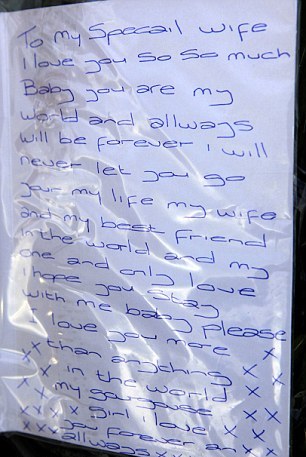 To my Specail wife
I love you so so much
Baby you are my
world and allways
will be forever i will
never let you go
your my life my wife
and my best friend
in the world and my
one and only love
i hope you stay
with me baby please
I love you more
x x than anything x x
x x in the world x
x x my gorgouse x x
x x x x girl i love x x x
x x x you forever an x
allways x x x x